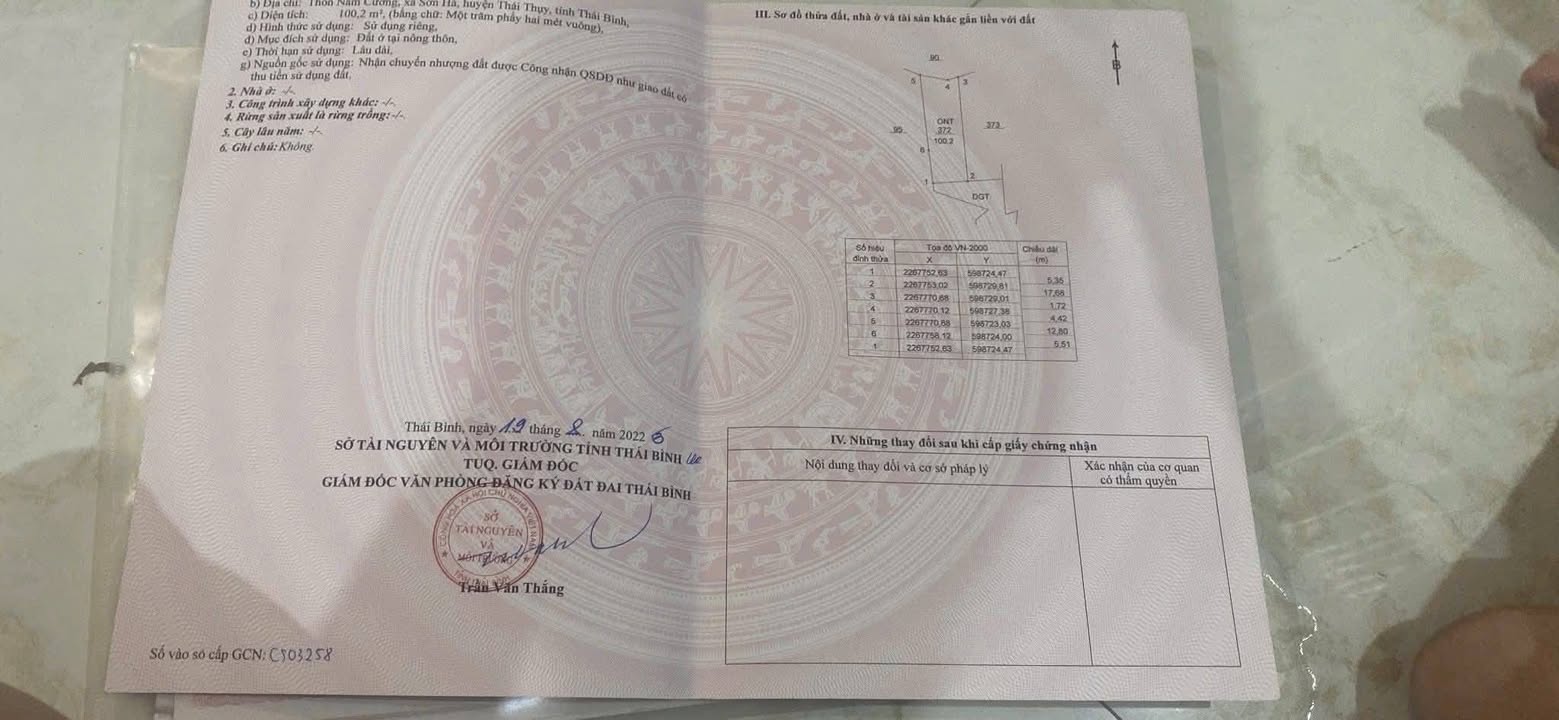 b) Địa chỉ: Thôn Nam Cường, xã Sơn Hà, huyện Thái Thụy, tỉnh Thái Bình,
c) Diện tích: 100,2 m², (bằng chữ: Một trăm phẩy hai mét vuông),
d) Hình thức sử dụng: Sử dụng riêng,
đ) Mục đích sử dụng: Đất ở tại nông thôn,
e) Thời hạn sử dụng: Lâu dài,
g) Nguồn gốc sử dụng: Nhận chuyển nhượng đất được Công nhận QSDĐ như giao đất có
thu tiền sử dụng đất.
2. Nhà ở: -/-.
3. Công trình xây dựng khác: -/-.
4. Rừng sản xuất là rừng trồng: -/-.
5. Cây lâu năm: -/-.
6. Ghi chú: Không.
Thái Bình, ngày 19 tháng 8. năm 2022
SỞ TÀI NGUYÊN VÀ MÔI TRƯỜNG TỈNH THÁI BÌNH
TUQ. GIÁM ĐỐC
GIÁM ĐỐC VĂN PHÒNG ĐĂNG KÝ ĐẤT ĐAI THÁI BÌNH
CỘNG HÒA XÃ HỘI CHỦ NGHĨA VIỆT NAM
SỞ
TÀI NGUYÊN
VÀ
MÔI TRƯỜNG
Trần Văn Thắng
Số vào sổ cấp GCN: CS03258
III. Sơ đồ thửa đất, nhà ở và tài sản khác gắn liền với đất
B
90
5 4 3
95 ONT 373
372
100.2
6
1 2
DGT
Số hiệu đỉnh thửa Tọa độ VN-2000 Chiều dài (m)
X Y
1 2267752,63 598724,47
5,35
2 2267753,02 598729,81
17,68
3 2267770,68 598729,01
1,72
4 2267770,12 598727,38
4,42
5 2267770,88 598723,03
12,80
6 2267758,12 598724,00
5,51
1 2267752,63 598724,47
IV. Những thay đổi sau khi cấp giấy chứng nhận
Nội dung thay đổi và cơ sở pháp lý
Xác nhận của cơ quan
có thẩm quyền